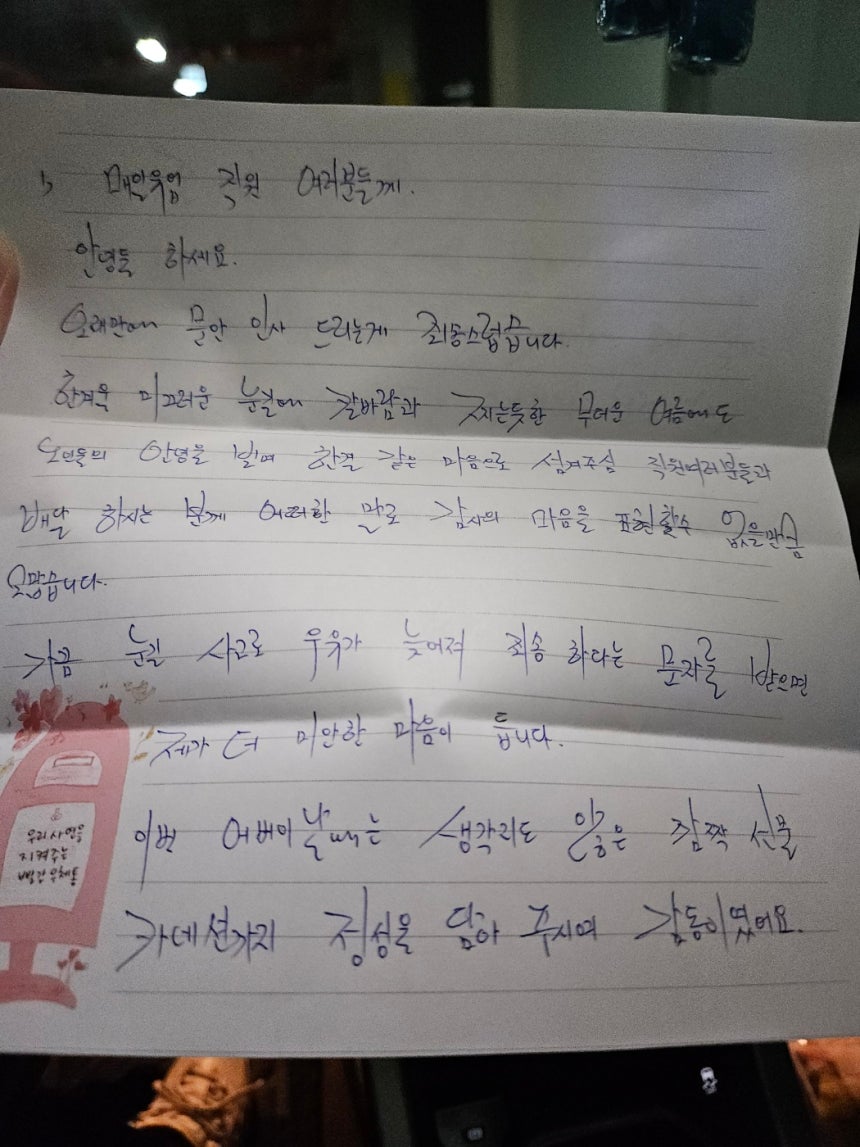 1, 매일유업 직원 여러분들께.
안녕들 하세요.
오래만에 문안 인사 드리는게 죄송스럽습니다.
한겨울 미끄러운 눈길에 칼바람과 찌는듯한 무더운 여름에도
노인들의 안녕을 빌며 한결 같은 마음으로 섬겨주심 직원여러분들과
배달 하시는 분께 어떠한 말로 감사의 마음을 표현할수 없을만큼
고맙습니다.
가끔 눈길 사고로 우유가 늦어져 죄송 하다는 문자를 받으면
제가 더 미안한 마음이 듭니다.
이번 어버이날에는 생각지도 않은 깜짝 선물
카네션까지 정성을 담아 주시며 감동이였어요.
우리 사연을
지켜주는
빨간 우체통